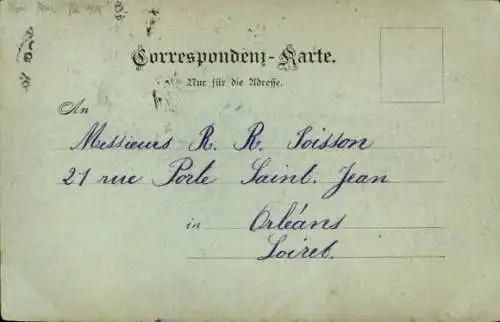 Correspondenz-Karte.
Nur für die Adresse.
An
Messieurs R. R. Soisson
21 rue Porte Saint. Jean
in Orléans
Loiret.